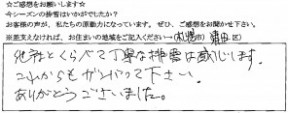 ☆ご感想をお願いします☆
今シーズンの排雪はいかがでしたか？
お客様の声が、私たちの原動力になっています。ぜひ、ご感想をお聞かせ下さい。
※差支えなければ、お住まいの地域をご記入ください→(札幌市)(清田区)
他社とくらべて丁寧な排雪は感じます。
これからもガンバって下さい。
ありがとうございました。